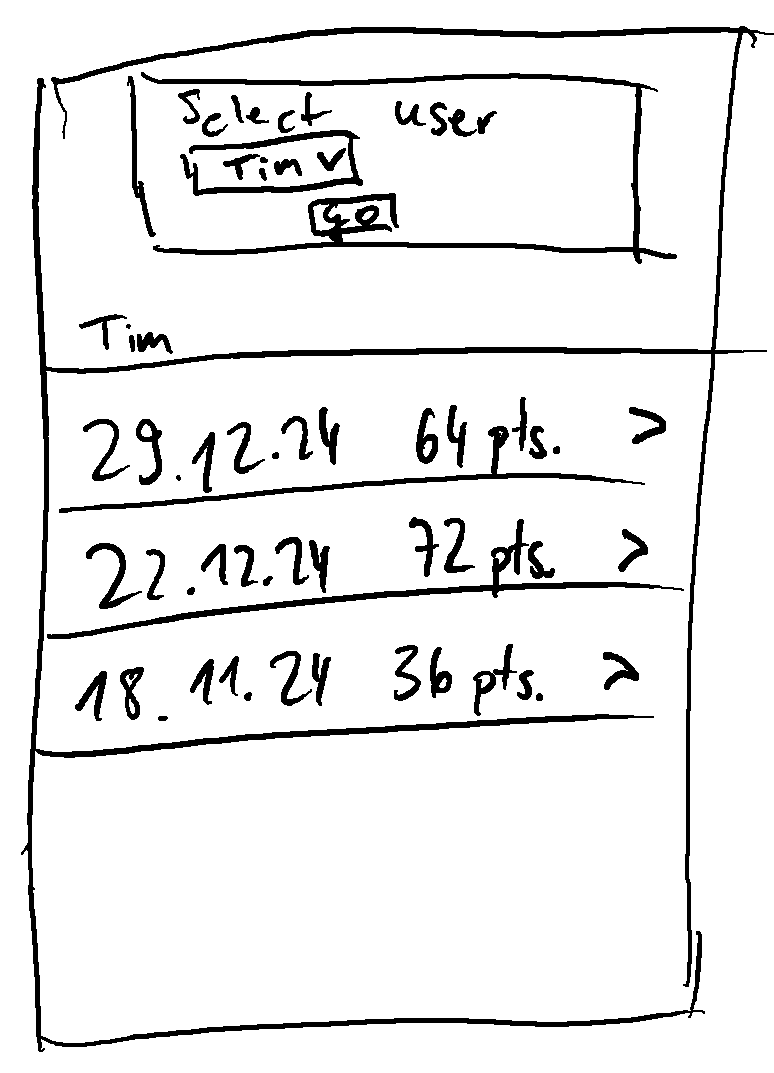 Select user
Tim v
GO
Tim
29.12.24 64 pts. >
22.12.24 72 pts. >
18.11.24 36 pts. >